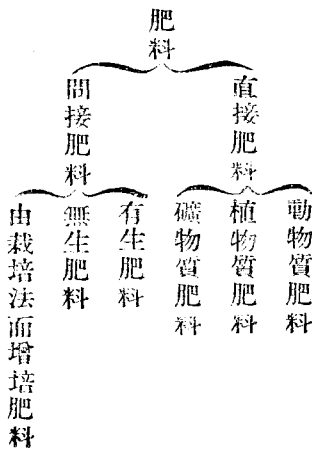 肥料
直接肥料
動物質肥料
植物質肥料
礦物質肥料
間接肥料
有生肥料
無生肥料
由栽培法而增培肥料